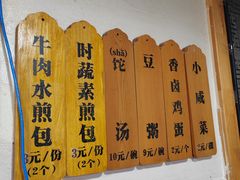 牛肉水煎包
3元/份
(2个)
时蔬素煎包
3元/份
(2个)
(shá)
饣它汤
10元/碗
豆粥
9元/碗
香卤鸡蛋
2元/个
小咸菜